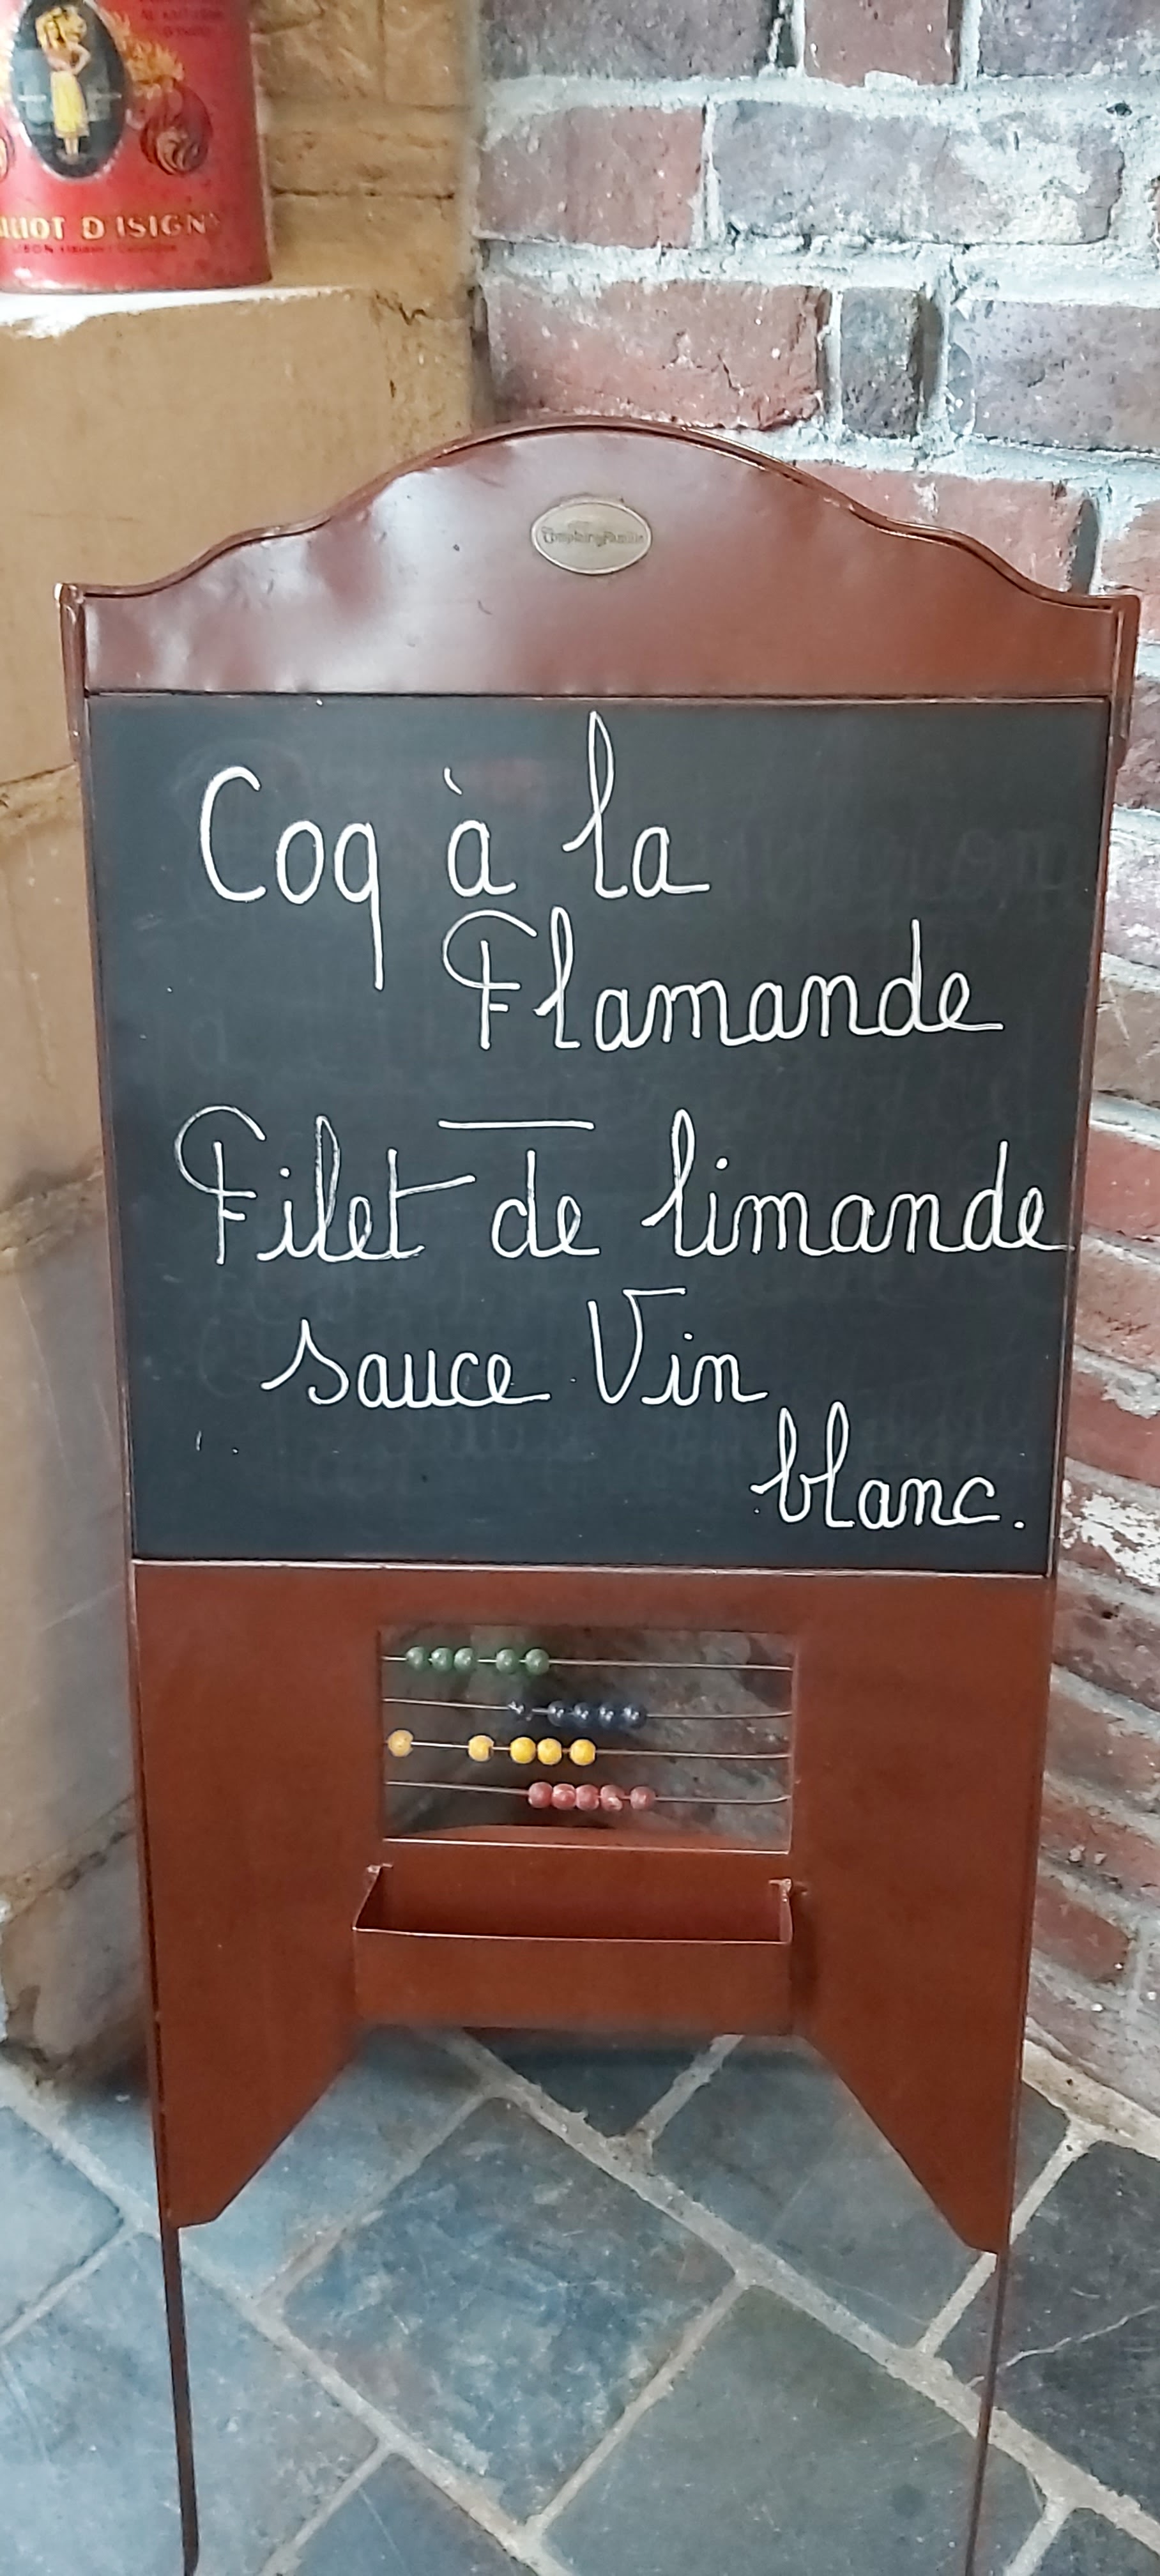 LLIOT D ISIGNY
Comptoir de Famille
Coq à la
Flamande
Filet de limande
sauce Vin
blanc.